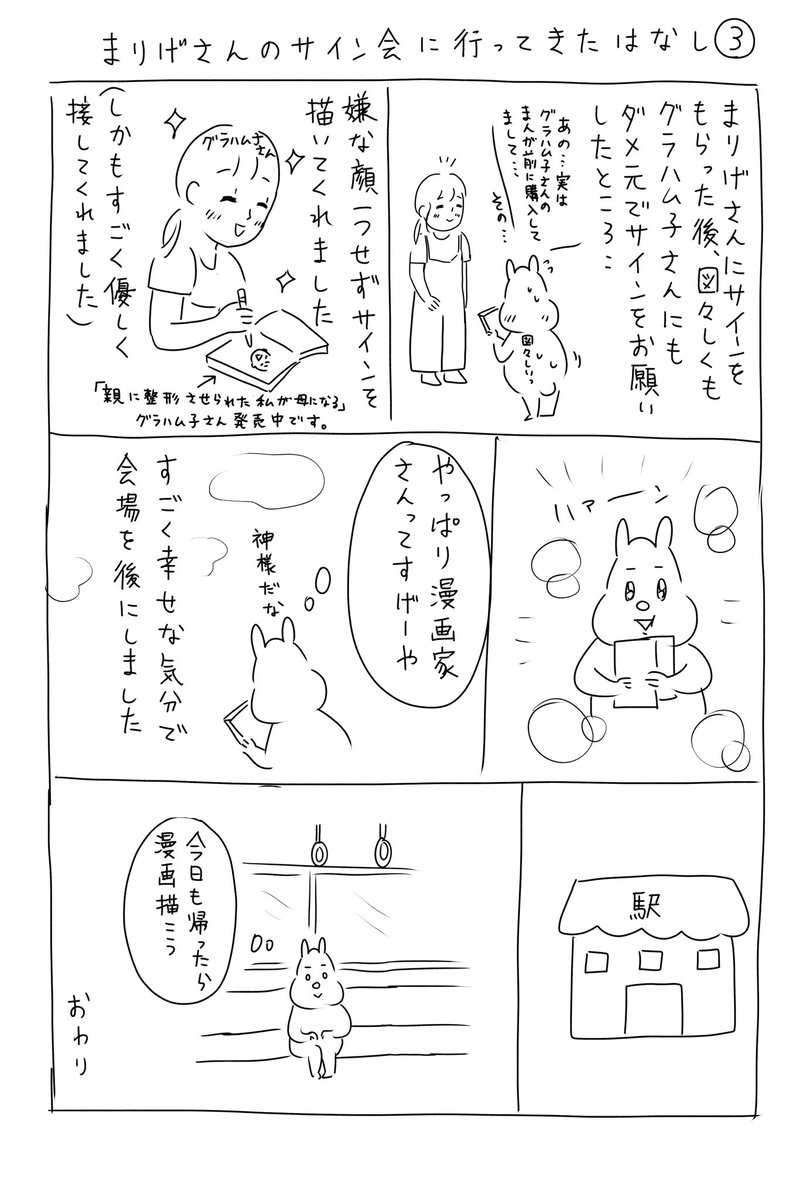 まりげさんのサイン会に行ってきたはなし③
まりげさんにサインを
もらった後、図々しくも
グラハム子さんにも
ダメ元でサインをお願い
したところ…
あの…実は
グラハム子さんの
まんが前に購入して
まして…
その…
図々しいっ
嫌な顔一つせずサインを
描いてくれました
グラハム子さん
(しかもすごく優しく
接してくれました)
「親に整形させられた私が母になる」
グラハム子さん発売中です。
ハァーーン
やっぱり漫画家
さんってすげーや
神様だな
すごく幸せな気分で
会場を後にしました
駅
今日も帰ったら
漫画描こう
おわり